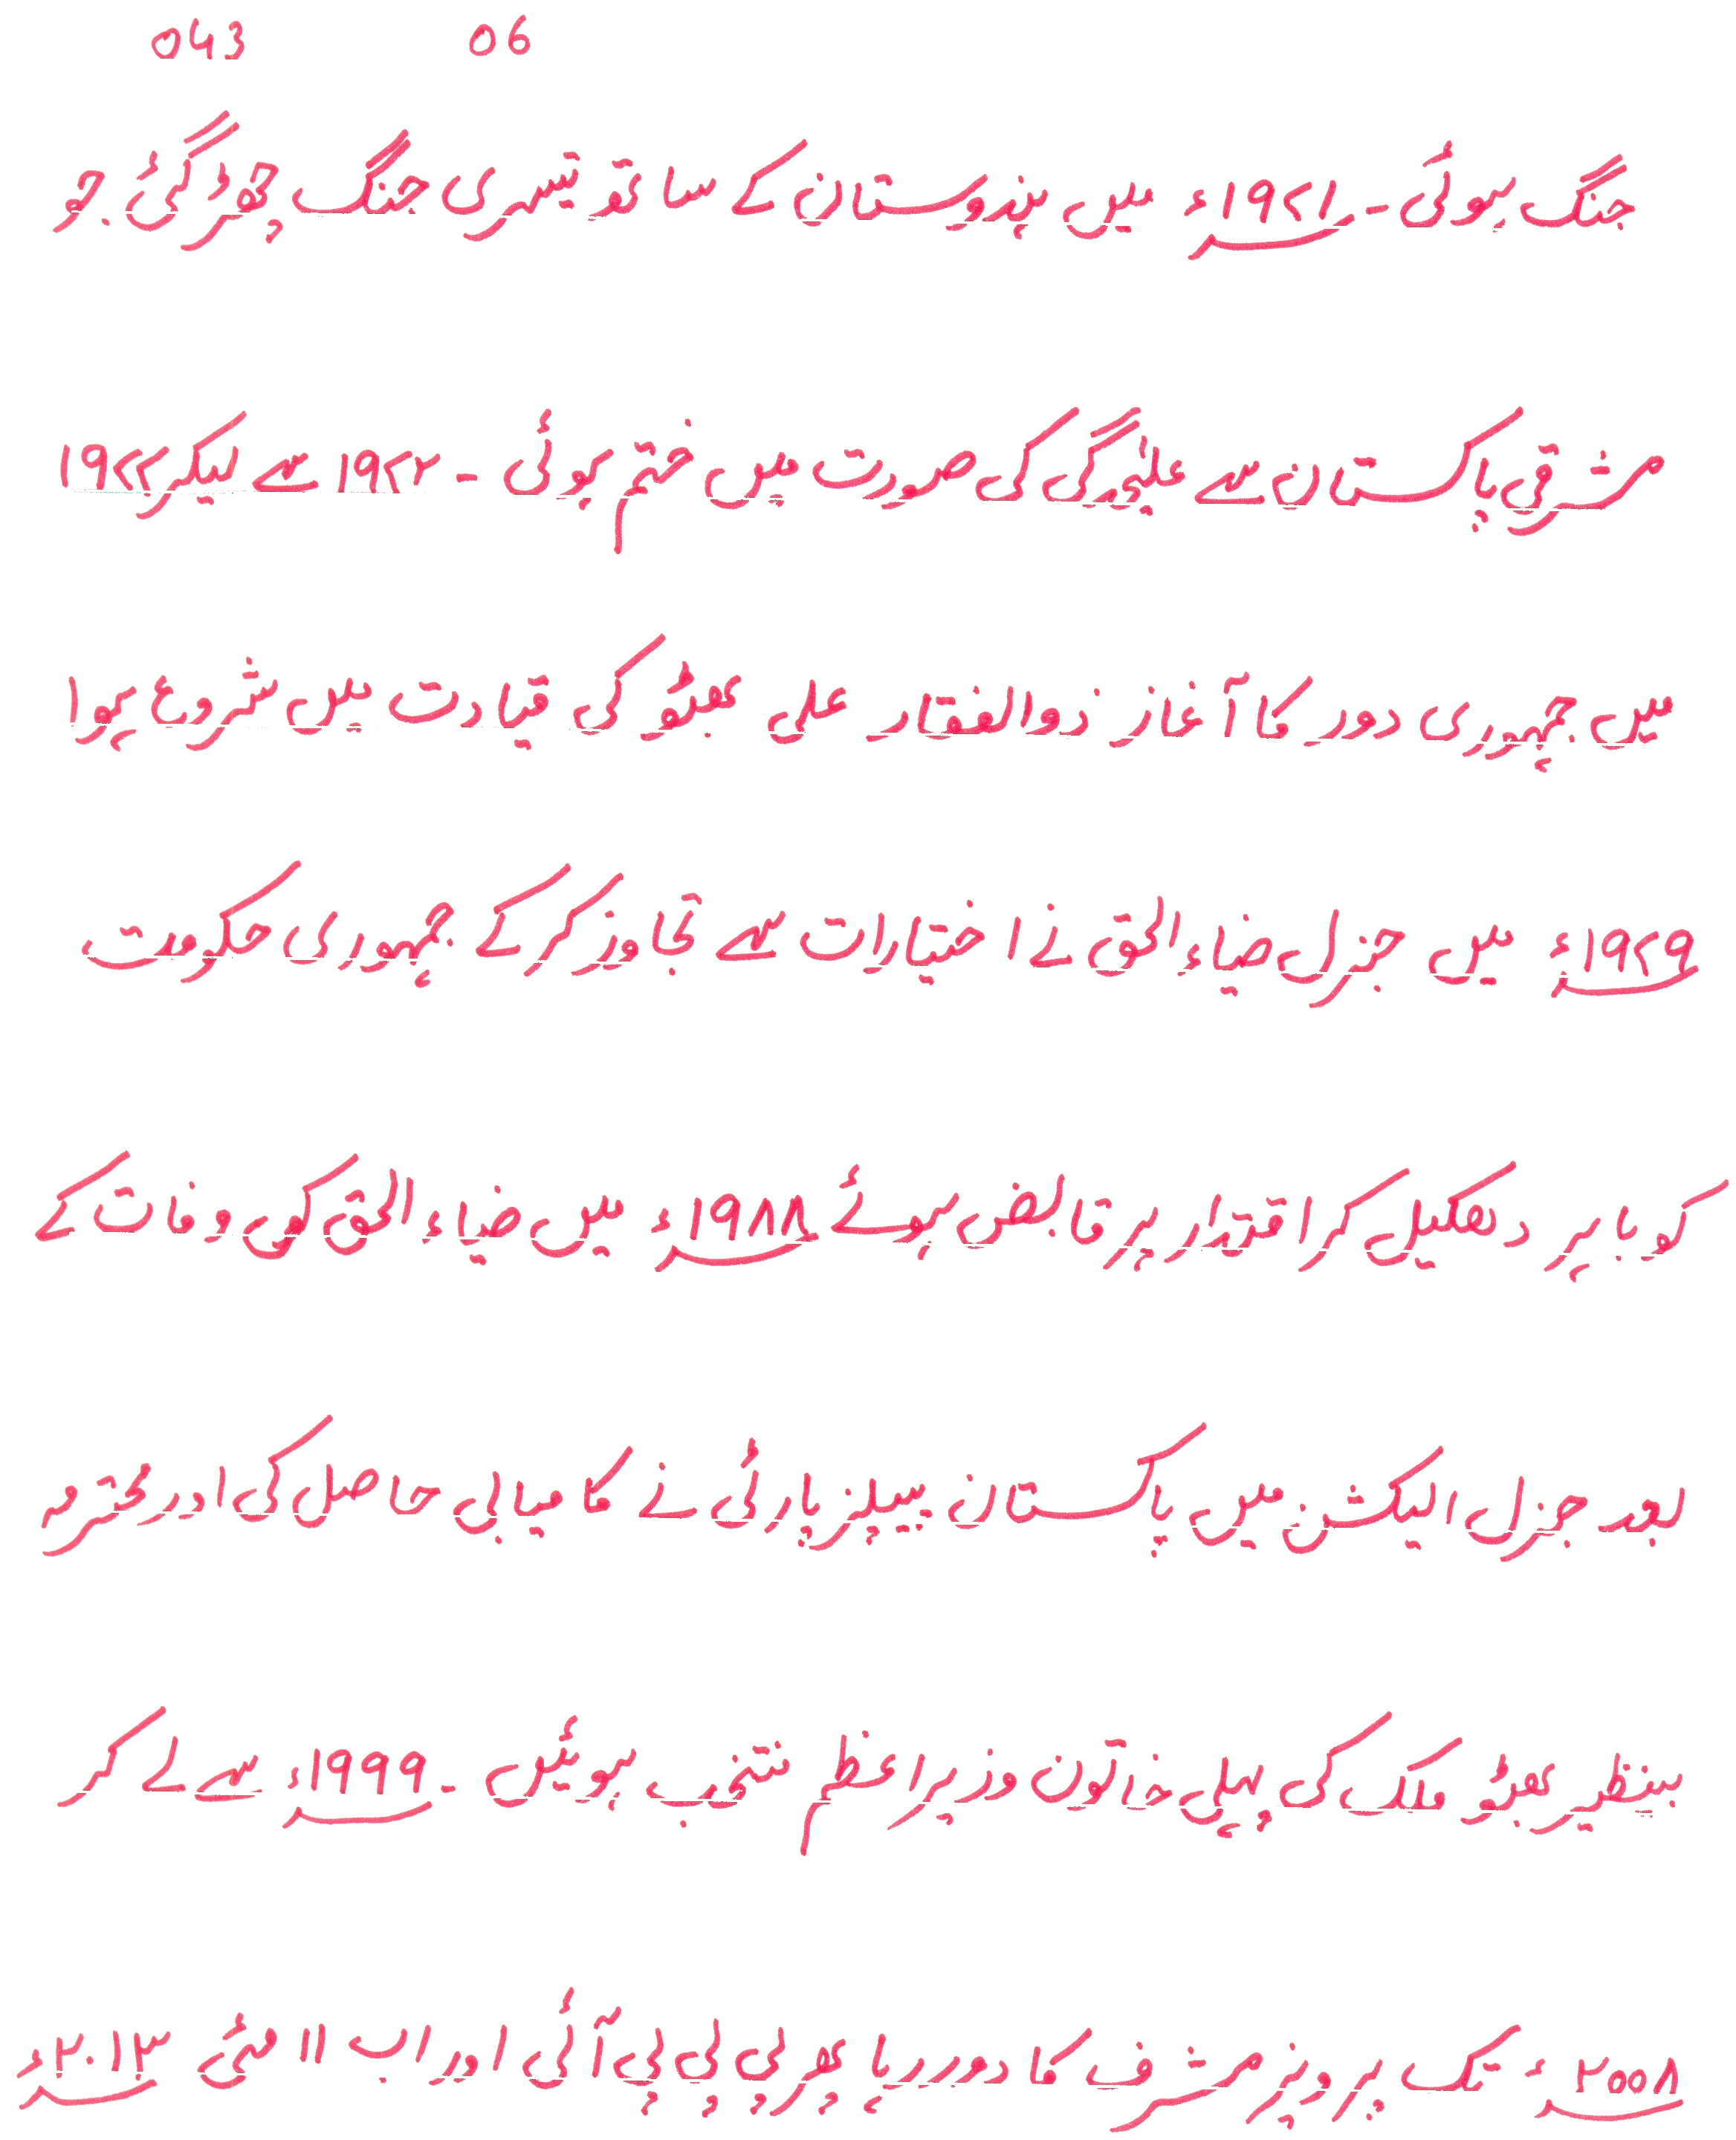 043 06
جنگ ہوئی - ۱۹۷۱ء میں ہندوستان کے ساتھ تیسری جنگ چھڑ گئی جو
مشرقی پاکستان سے علیٰحدگی کی صورت میں ختم ہوئی - ۱۹۷۲ سے لیکر ۱۹۷۷
میں جمہوری دور کا آغاز ذوالفقار علی بھٹو کی قیادت میں شروع ہوا
۱۹۷۹ء میں جنرل ضیاء الحق نے اختیارات سے تجاوز کر کے جمہوری حکومت
کو باہر دھکیل کر اقتدار پر قابض ہوئے ۱۹۸۸ء میں ضیاء الحق کی وفات کے
بعد جنرل الیکشن میں پاکستان پیپلز پارٹی نے کامیابی حاصل کی اور محترمہ
بینظیر بھٹو ملک کی پہلی خاتون وزیراعظم منتخب ہوئیں - ۱۹۹۹ء سے لے کر
۲۰۰۸ء تک پرویز مشرف کا دور رہا پھر پی پی پی آئی اور اب ۱۱ مئی ۲۰۱۳ء